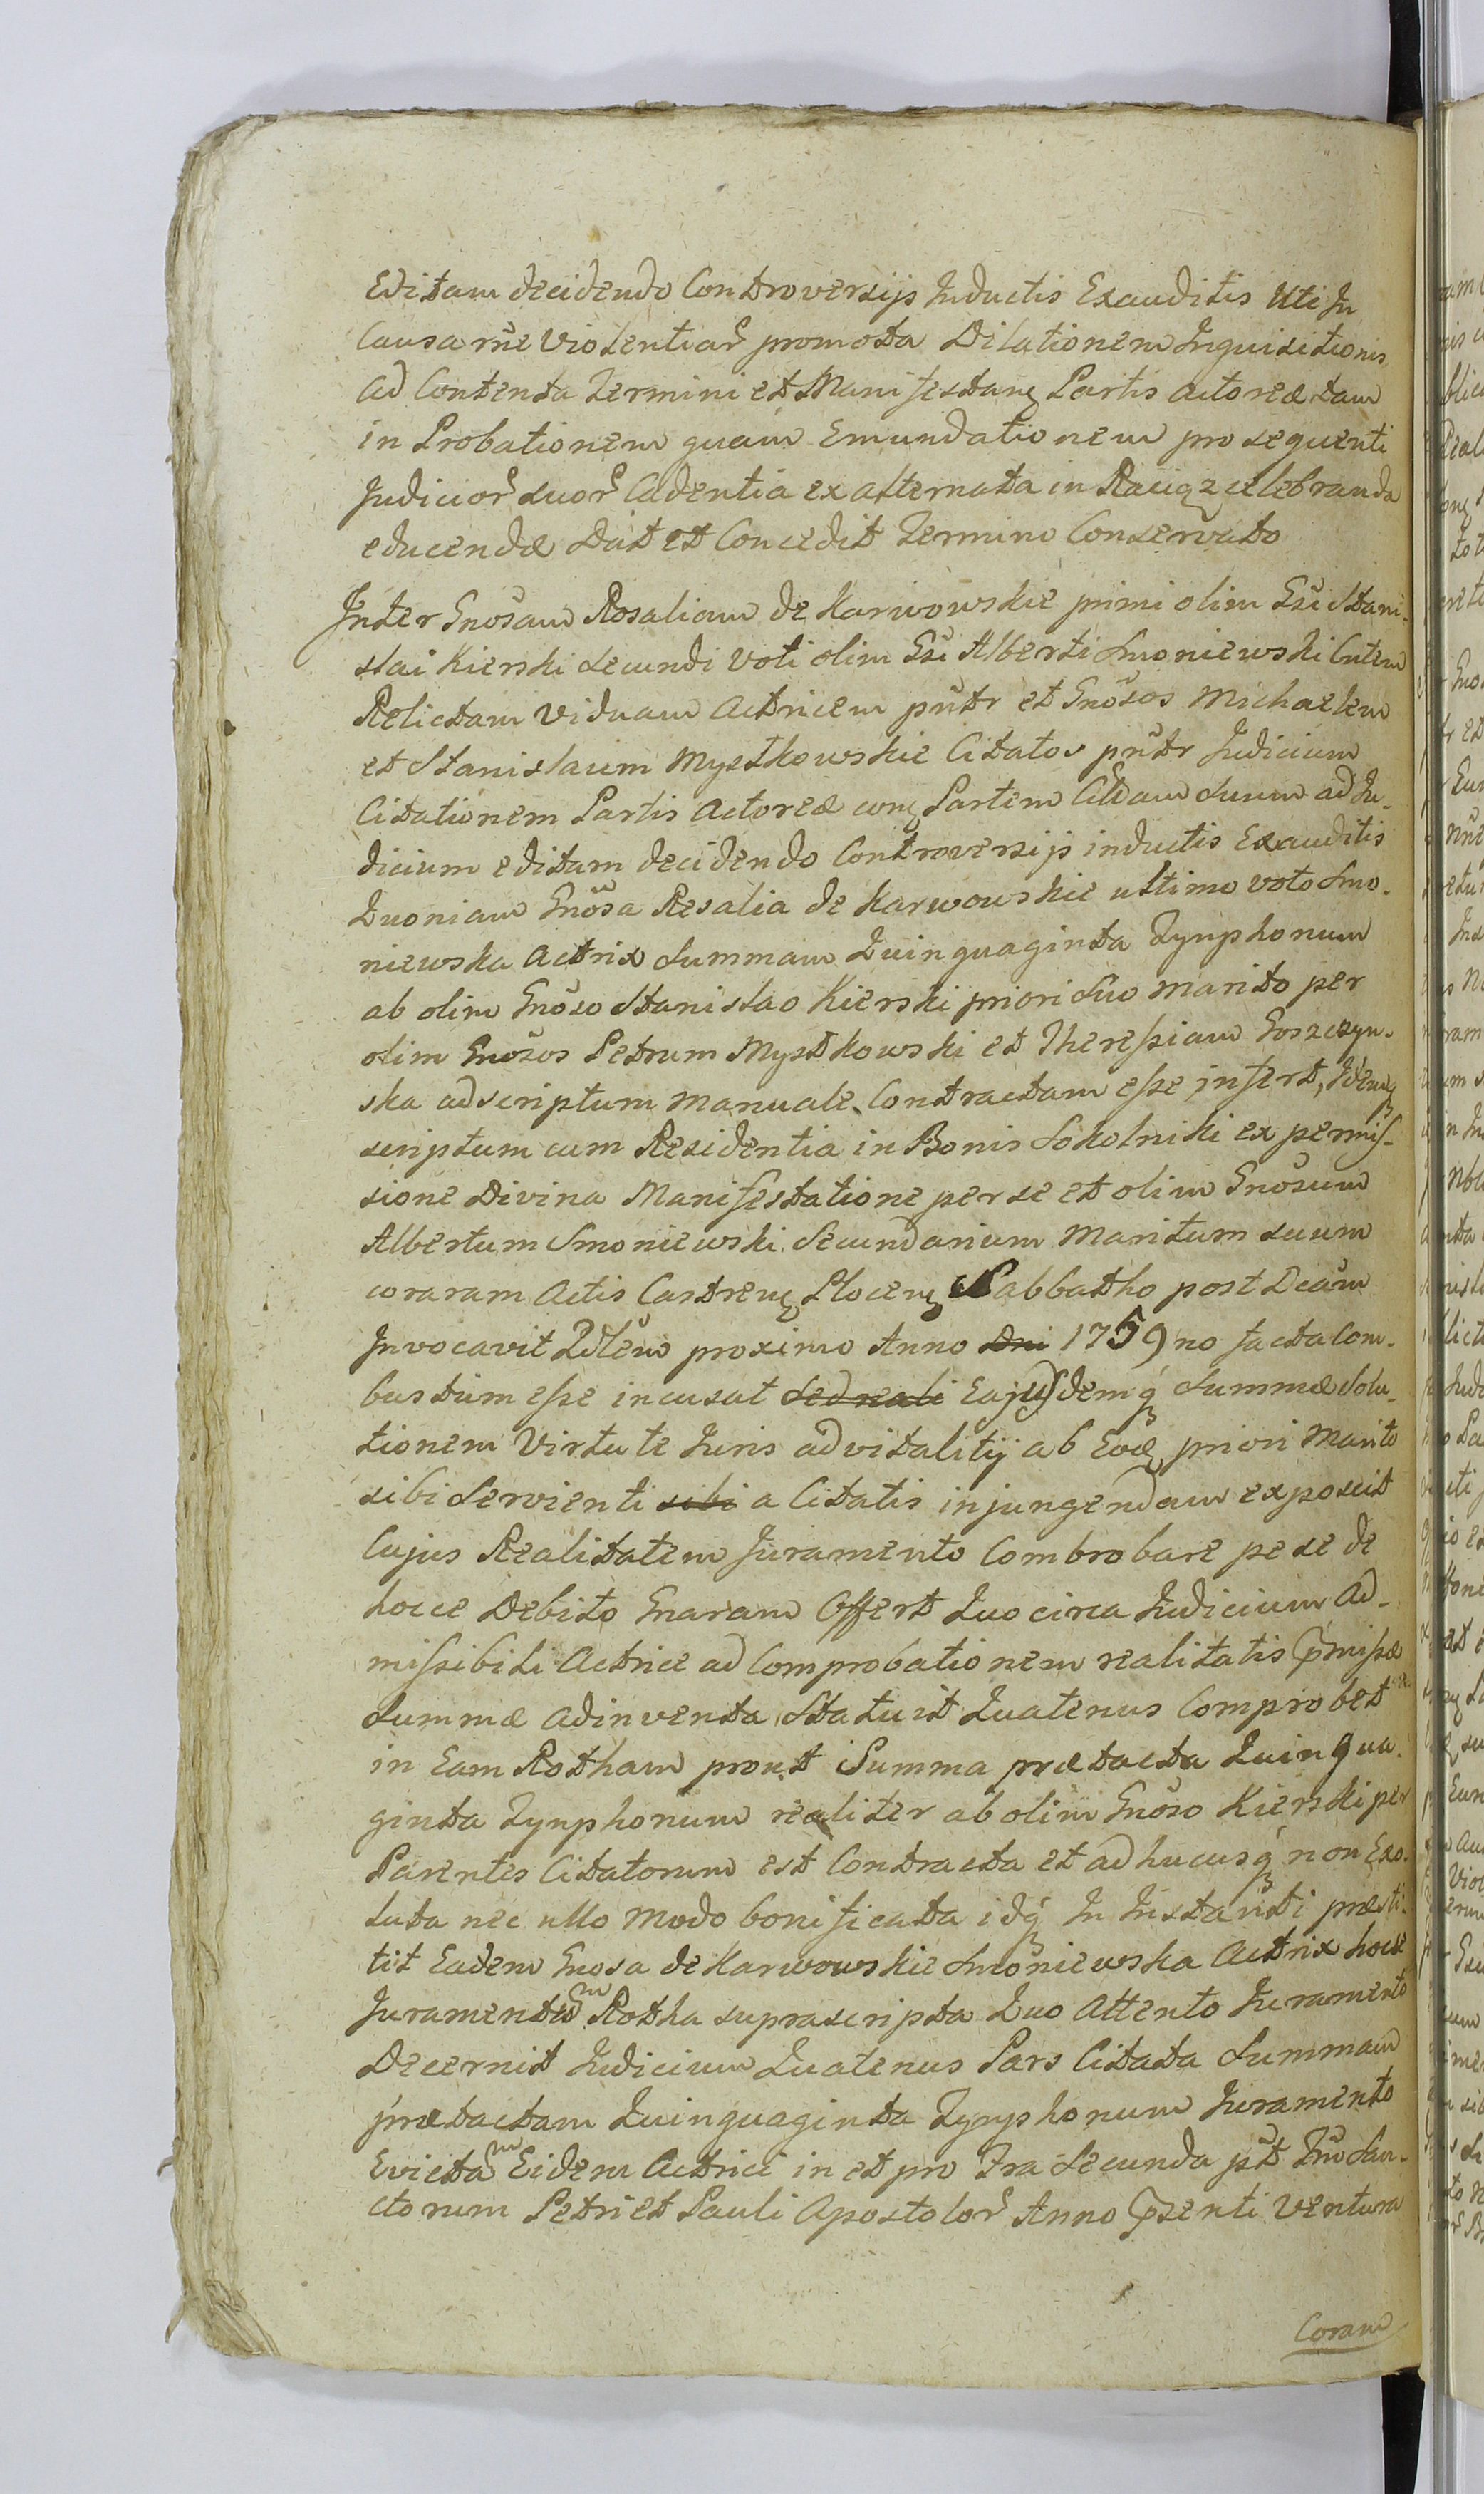 Editam decidendo Controversijs Inductis Exauditis Uti In
Causa rñe Violentiar̃ promota Dilationem Inquisitionis
ad Contenta Termini et Manifestanę Partis actoreæ tam
in Probationem quam Emundationem pro sequenti
Judicior̃ suor̃ Cadentia ex alternata in Raciąz celebranda
educendæ Dat et Concedit Termino Conservato
Inter Gnosam Rosaliam de Karwowskie primi olim Gsi Stani-
slai Kierski secundi Voti olim Gsi Alberti Smoniewski Cntem
Relictam Viduam Actricem pñtr et Gnõsos Michaelem
et Stanislaum Mystkowskie Citatos pñtr Judicium
Citationem Partis Actoreæ conę Partem Citãam suum ad Ju-
dicium editam decidendo Controversijs inductis Exauditis
Quoniam Gnõsa Rosalia de Karwowskie ultimo voto Smo-
niewska Actrix Summam Quinquaginta Tynphonum
ab olim Gnõso Stanislao Kierski priori suo marito per
olim Gnõsos Petrum Mystkowski et Theressiam Goszczyn-
ska ad scriptum manuale Contractam esse infert, Idemą
scriptum cum Residentia in Bonis Sokolniki ex permis-
sione Divina Manifestatione per se et olim Gnosum
Albertum Smoniewski Secundarium Maritum suum
coraram Actis Castrenę Plocenę Sabbatho post Dcam
Invocavit Qdlem proximo Anno Dni 1759no facta Com-
bustum esse incusat sed reali Eajusdemq́ Summæ Solu-
tionem Virtute Juris advitalitij ab Eoę priori Marito
sibi Servienti sibi a Citatis injungendam exposcit
Cujus Realitatem Juramento Combrobare pe se de
hocce Debito Gnaram Offert Quo circa Judicium Ad-
missibili Actrice ad Comprobationem realitatis p̃missæ
Summæ adinventa Statuit Quatenus Comprobet
in Eam Rotham prout Summa prætacta Quinqua-
ginta Tynphonum realiter ab olim Gnõso Kierski per
Parentes Citatorum est Contracta et adhucusq́ non Exo-
luta nec ullo modo bonificata idq́ In Instanti præsti-
tit Eadem Gnosa de Karwowskie Smoniewska Actrix hocce
Juramentum Rotha suprascripta Quo Attento Juramento
Decernit Judicium Quatenus Pars Citata Summam
prætactam Quinquaginta Tynphonum Juramento
Evictam Eidem Actrici in et pro Fra Secunda pt Ftũ San-
ctorum Petri et Pauli Apostolor̃ Anno p̃senti Ventura
Coram